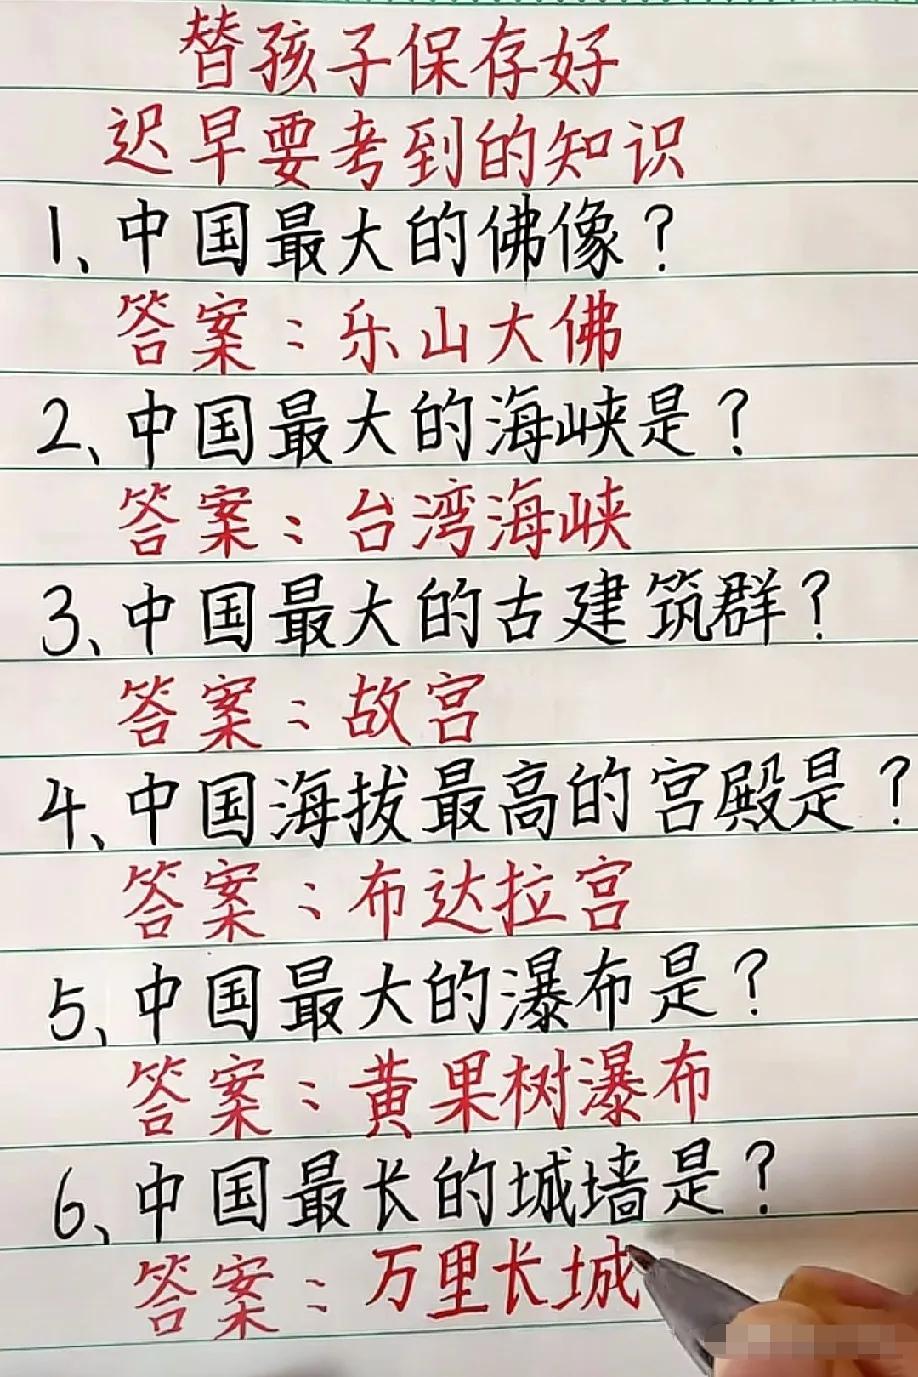 替孩子保存好
迟早要考到的知识
1、中国最大的佛像?
答案:乐山大佛
2、中国最大的海峡是?
答案:台湾海峡
3、中国最大的古建筑群?
答案:故宫
4、中国海拔最高的宫殿是?
答案:布达拉宫
5、中国最大的瀑布是?
答案:黄果树瀑布
6、中国最长的城墙是?
答案:万里长城